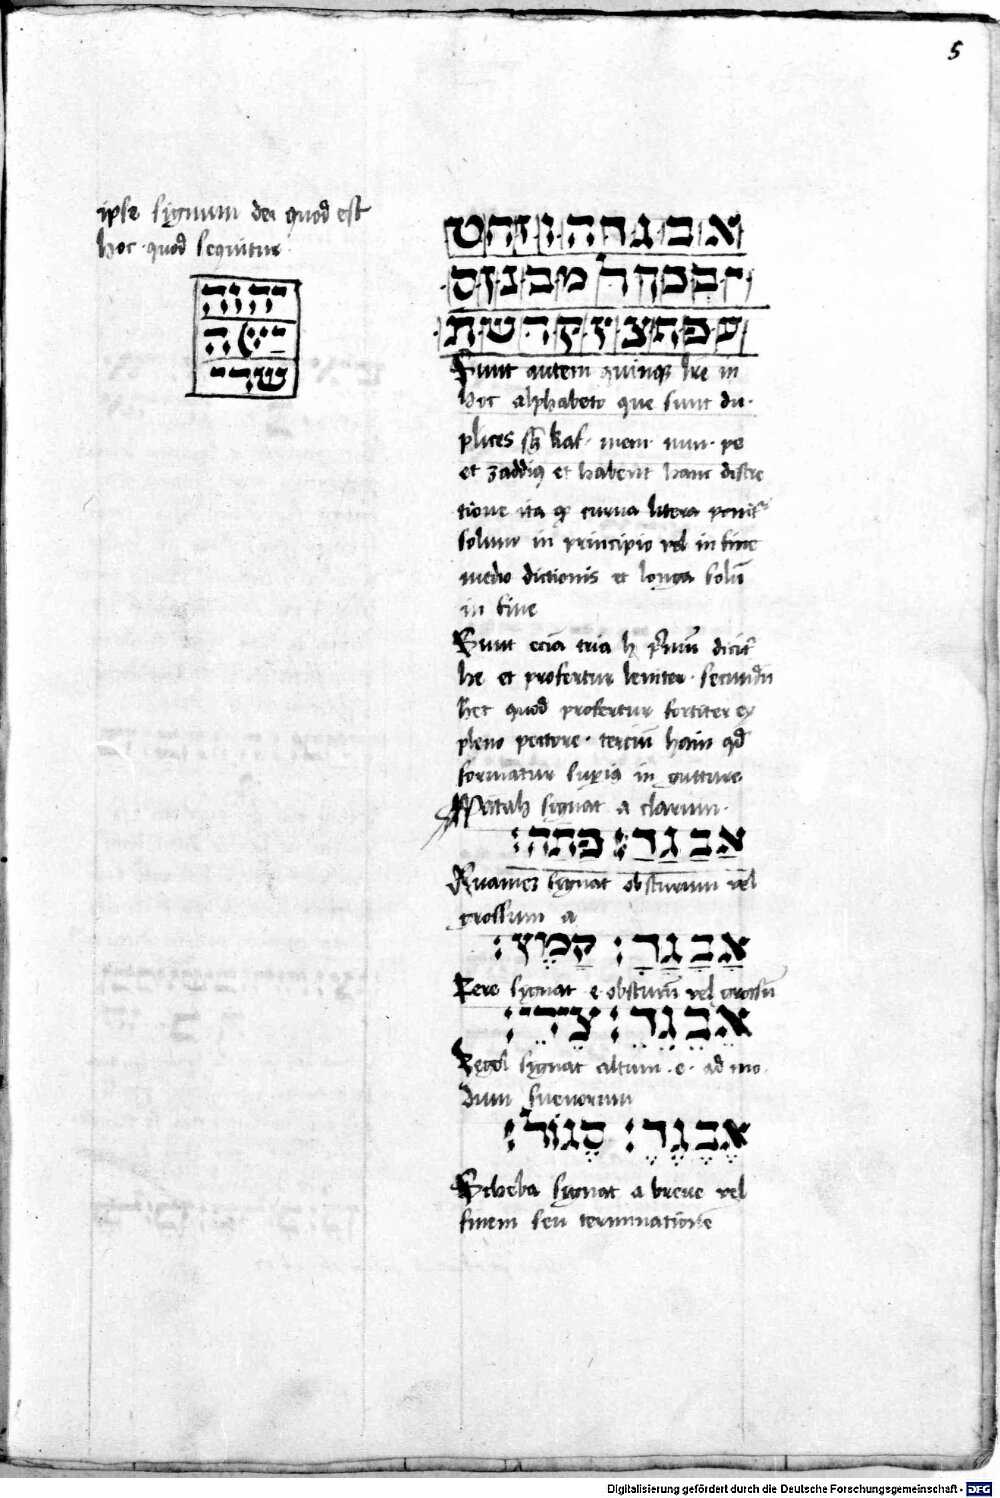 5
ipse signum dei quod est
hoc quod sequitur
יהוה
ישוה
שדי
א ב ג ד ה ו ז ח ט
י כ ך ל מ ם נ ן ס
ע פ ף צ ץ ק ר ש ת
Sunt autem quinque lre in
hoc alphabeto que sunt du-
plices kaf mem nun pe
et zaddiq et habent hanc discre
tione ita curva litera ponit
solum in principio vel in fine
medio dictionis et longa solu
in fine
Sunt ecia tria h primu dicit
he et profertur leniter secundu
het quod profertur fortiter ex
pleno pectore terciu hain qd
formatur in gutture
Patah signat a clarum
אַ בַ גַ דַ׃ פַּתַח׃
Kuamez signat obscurum vel
grossum a
אָ בָ גָ דָ׃ קָמֶץ׃
Zere signat e obscuru vel grossu
אֵ בֵ גֵ דֵ׃ צֵירֵי׃
Segol signat altum e ad mo
dum suevorum
אֶ בֶ גֶ דֶ׃ סֶגוֹל׃
Scheba signat a breve vel
finem seu terminatione
Digitalisierung gefördert durch die Deutsche Forschungsgemeinschaft - DFG